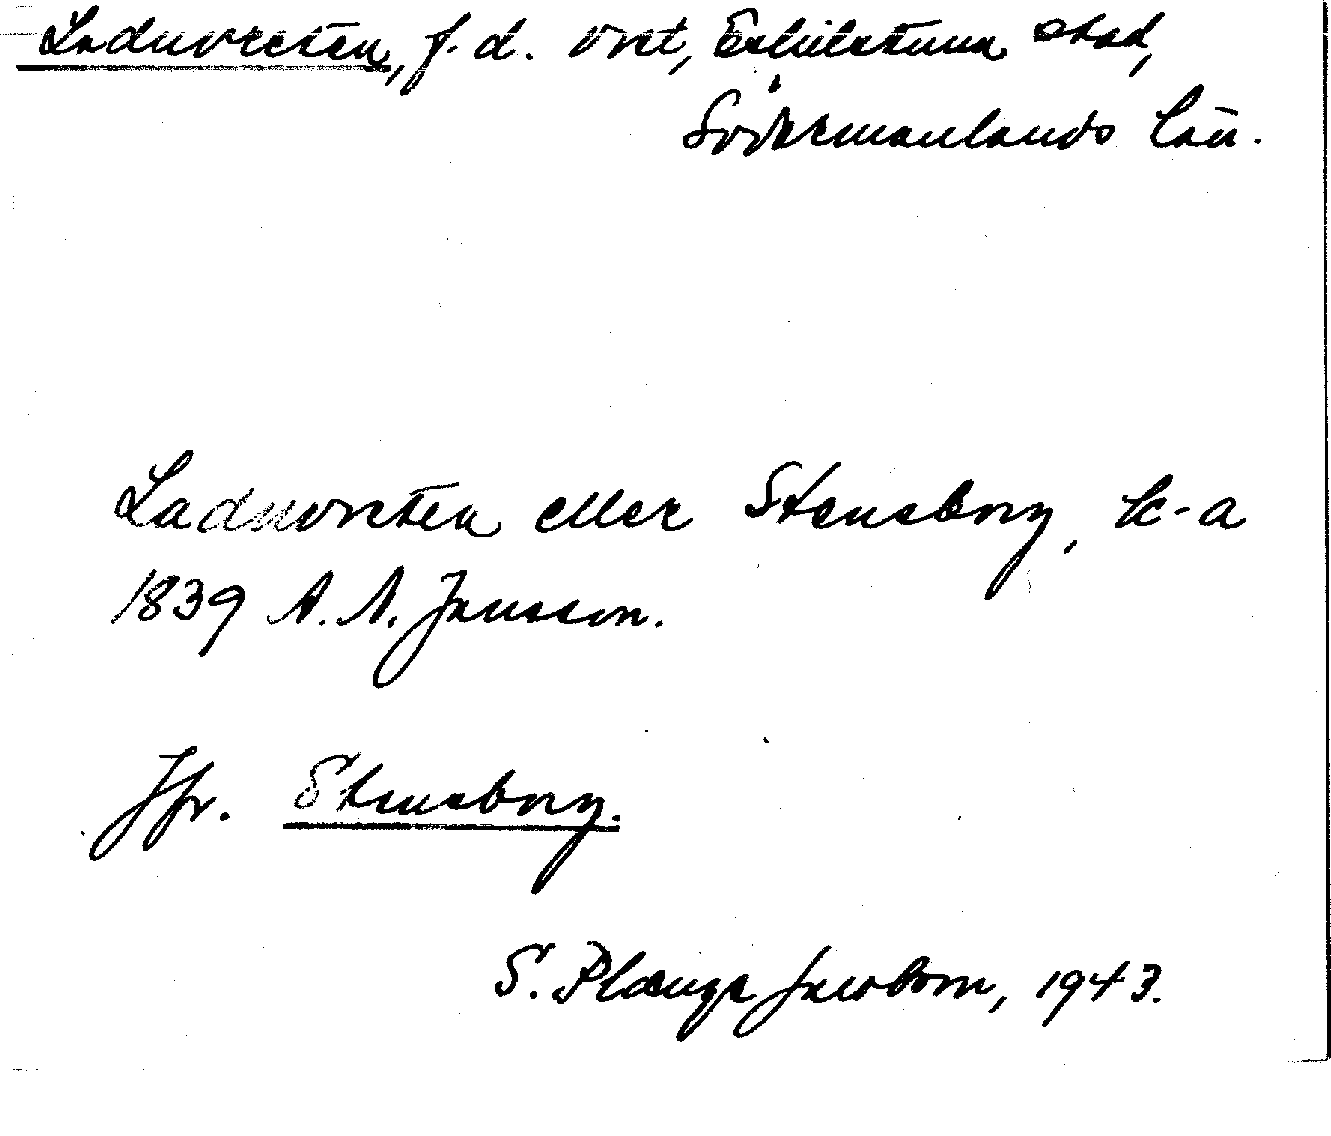 Laduvreten, f.d. vret, Eskilstuna stad,
Södermanlands län.
Laduvreten eller Stensborg, k-a
1839 A. A. Jansson.
Jfr. Stensborg.
S. Plænge Jacobson, 1943.